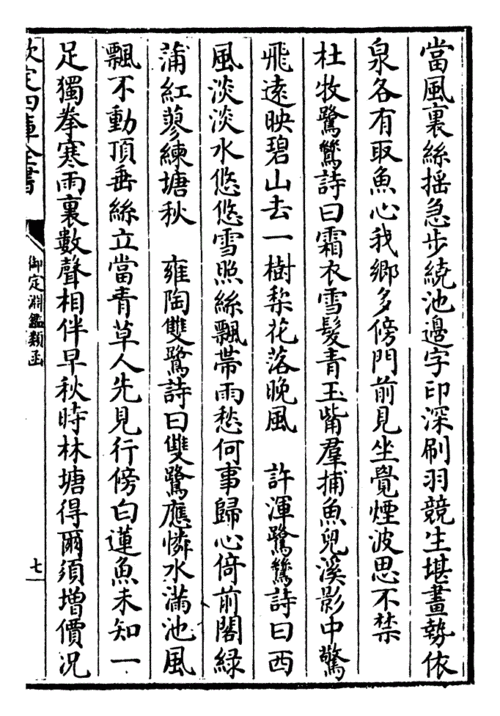 當風裏絲揺急步繞池邊字印深刷羽競生堪畫勢依
泉各有取魚心我鄉多傍門前見坐覺煙波思不禁
杜牧鷺鷥詩曰霜衣雪髮青玉觜羣捕魚兒溪影中驚
飛遠映碧山去一樹梨花落晚風　許渾鷺鷥詩曰西
風淡淡水悠悠雪照絲飄帶雨愁何事歸心倚前閣緑
蒲紅蓼練塘秋　雍陶雙鷺詩曰雙鷺應憐水滿池風
飄不動頂垂絲立當青草人先見行傍白蓮魚未知一
足獨拳寒雨裏數聲相伴早秋時林塘得爾須增價况
欽定四庫全書
御定淵鑑類函
七